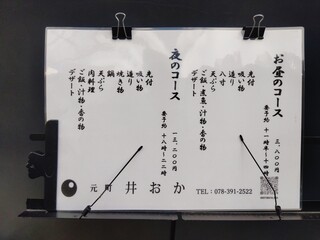 お昼のコース
三、八〇〇円
要予約 十一時半~十四時
先付
吸い物
造り
八寸
天ぷら
ご飯・煮魚・汁物・香の物
デザート
夜のコース
一三、二〇〇円
要予約 十八時~二二時
先付
吸い物
造り
焼き物
鍋
天ぷら
肉料理
ご飯・汁物・香の物
デザート
元町 井おか TEL:078-391-2522